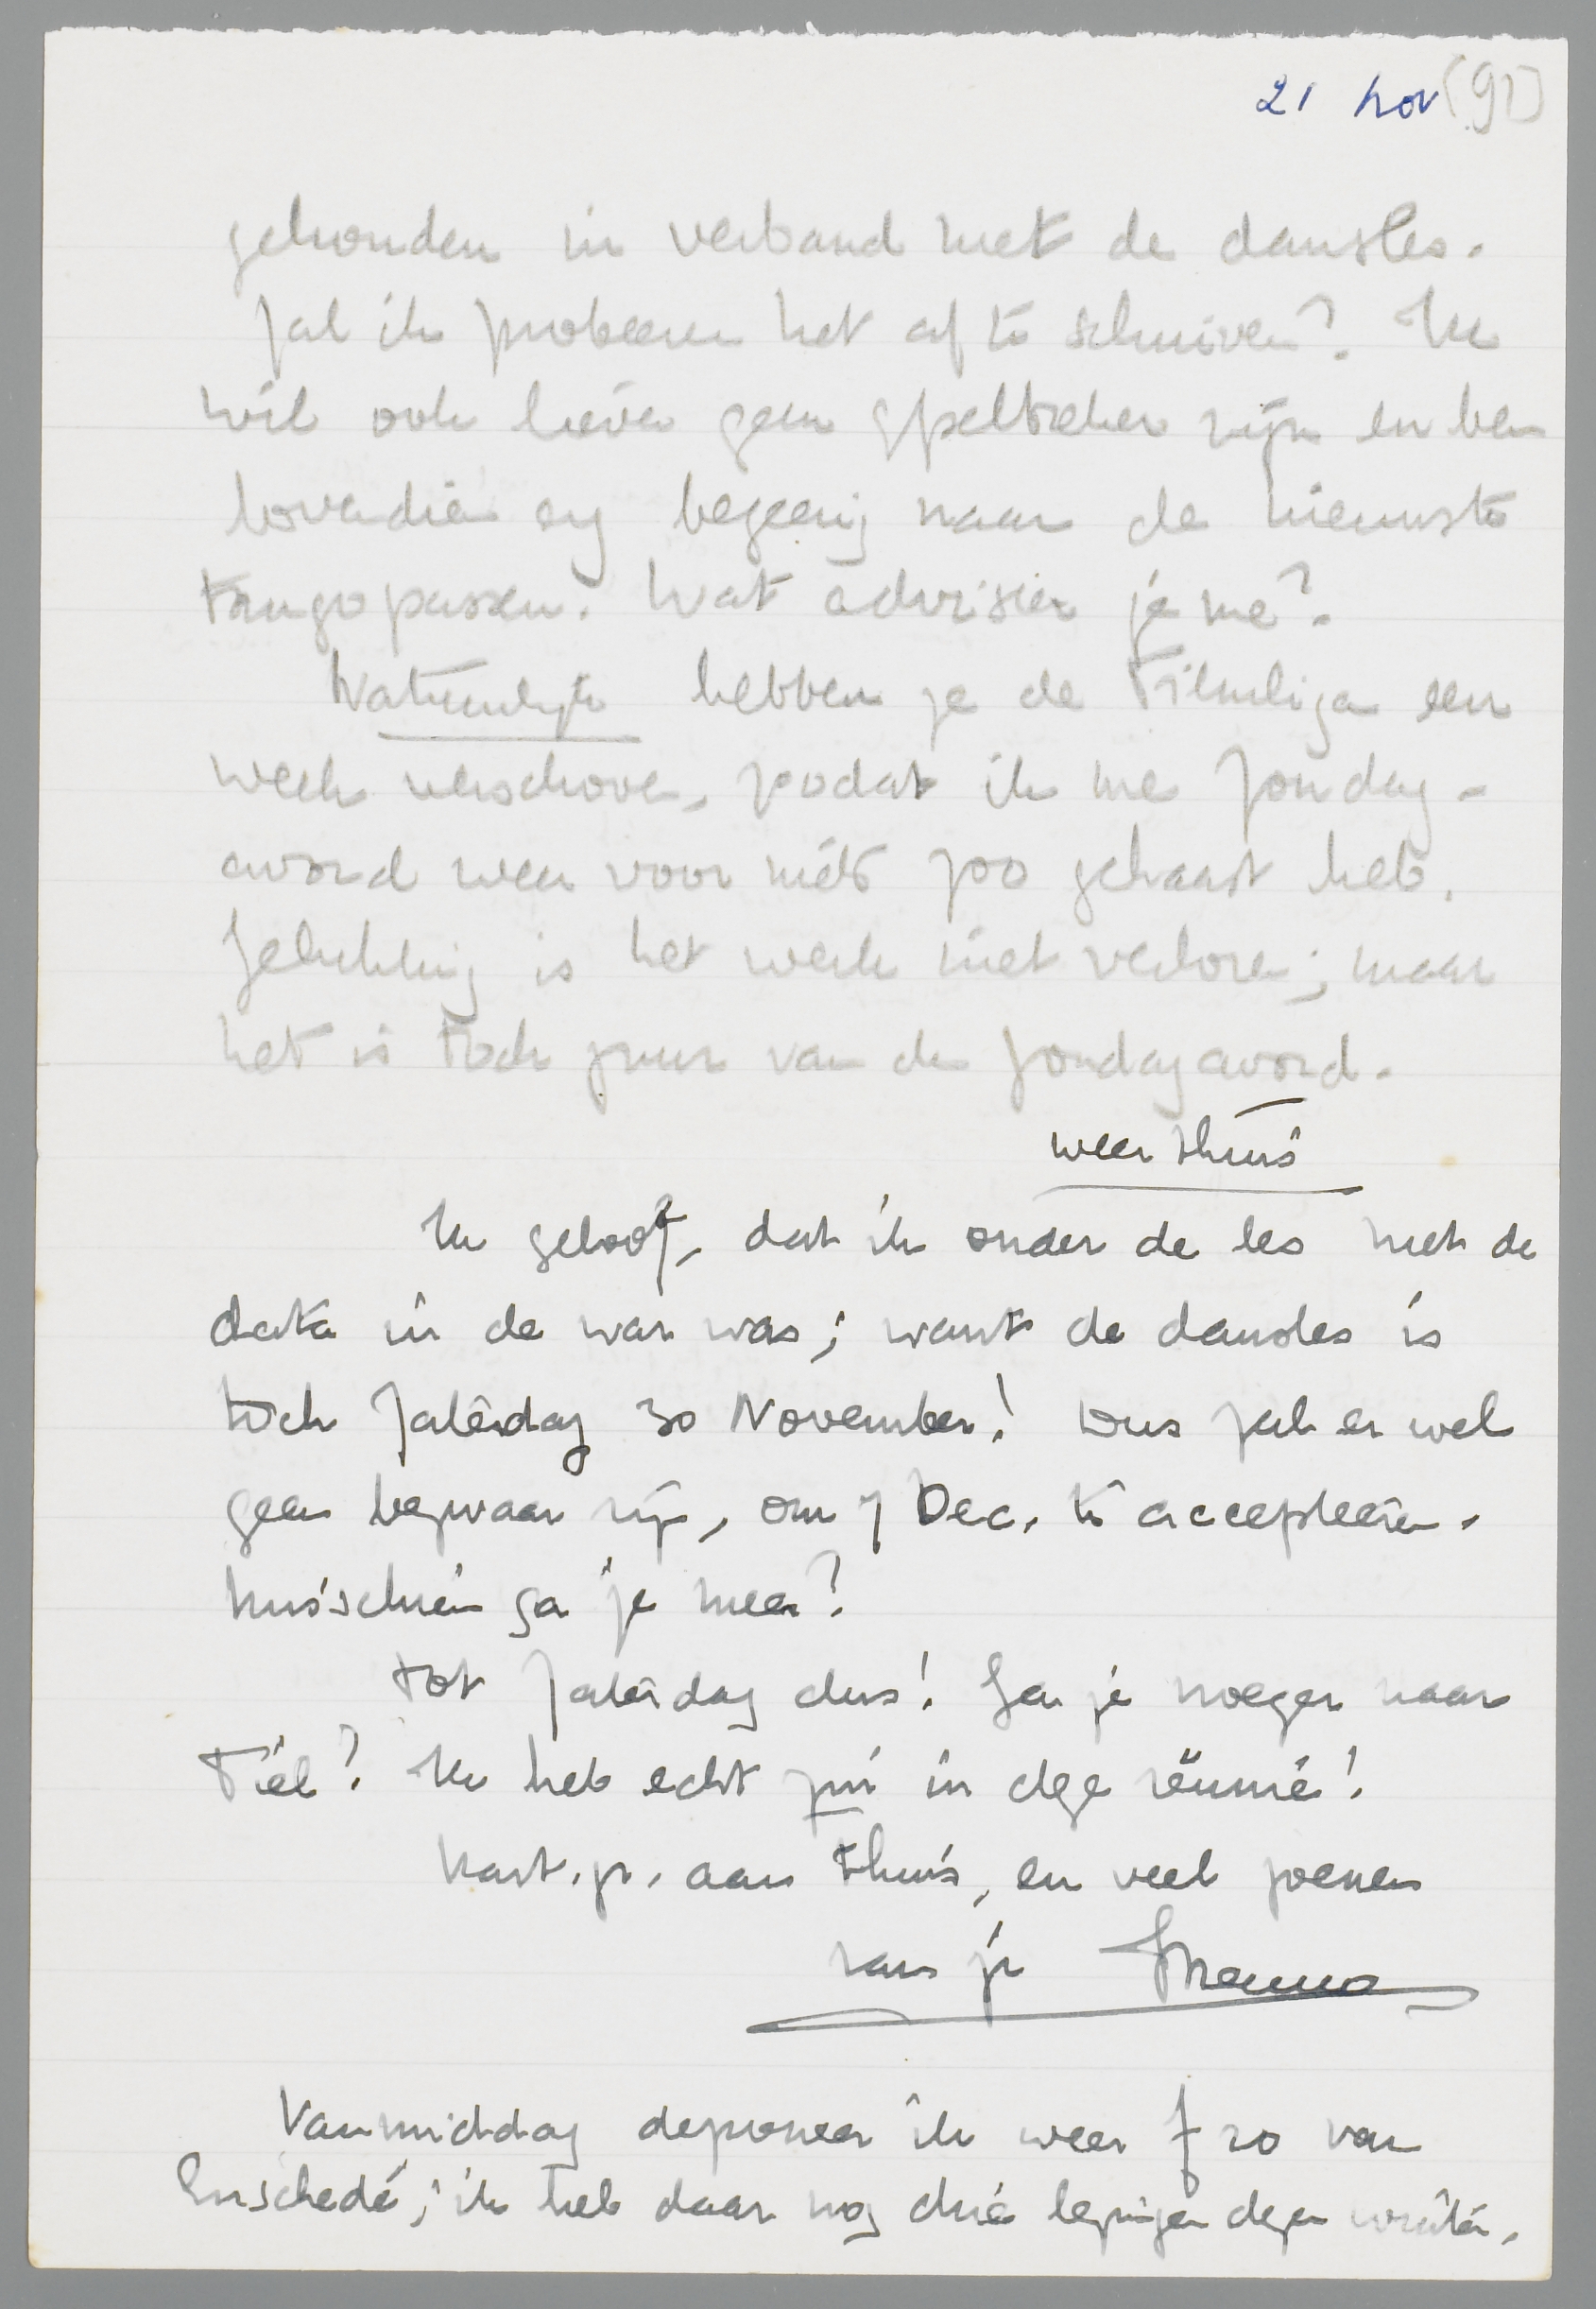 21 nov (91)
gehouden in verband met de dansles.
Zal ik probeeren het af te schuiven? Ik
wil ook liever geen spelbreker zijn en ben
bovendien erg begeerig naar de nieuwste
tangopassen. Wat adviseer je me?
Natuurlijk hebben ze de Filmliga een
week verschoven, zoodat ik me Zondag-
avond weer voor niets zoo gehaast heb.
Gelukkig is het werk niet verloren; maar
het is toch zuur van de Zondagavond.
weer thuis
Ik geloof, dat ik onder de les met de
data in de war was; want de dansles is
toch Zaterdag 30 November! Dus zal er wel
geen bezwaar zijn, om 7 Dec. te accepteeren.
Misschien ga je mee?
Tot Zaterdag dus! Ga je vroeger naar
Tiel? Ik heb echt zin in deze reünie!
Hart. gr. aan thuis, en veel zoenen
van je Menno
Vanmiddag deponeer ik weer f 20 van
Enschedé; ik heb daar nog drie lezingen dezen winter.